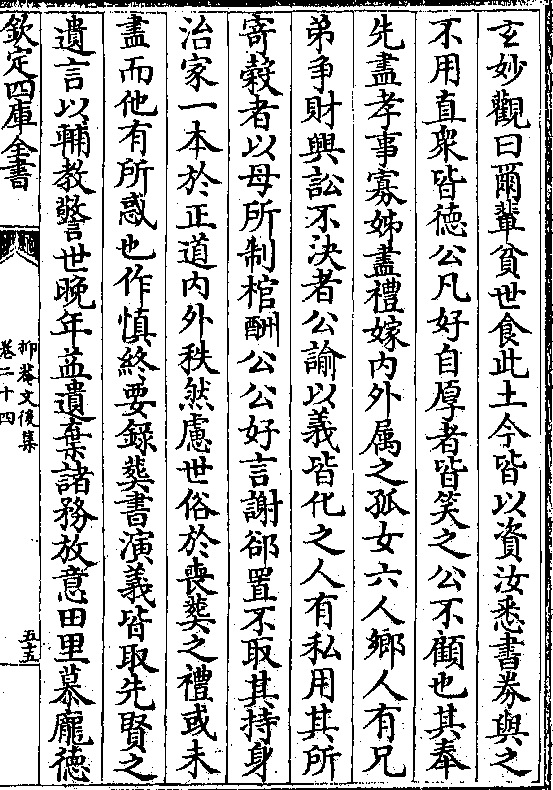 玄妙觀曰爾輩貧世食此土今皆以資汝悉書券與之
不用直衆皆德公凡好自厚者皆笑之公不顧也其奉
先盡孝事寡姊盡禮嫁内外属之孤女六人鄉人有兄
弟争財興訟不決者公諭以義皆化之人有私用其所
寄穀者以母所制棺酬公公好言謝郤置不取其持身
治家一本於正道内外秩然慮世俗於喪葬之禮或未
盡而他有所惑也作慎終要錄葬書演義皆取先賢之
遺言以輔教警世晚年益遺棄諸務放意田里慕龐德
欽定四庫全書
抑菴文後集
卷二十四
五五